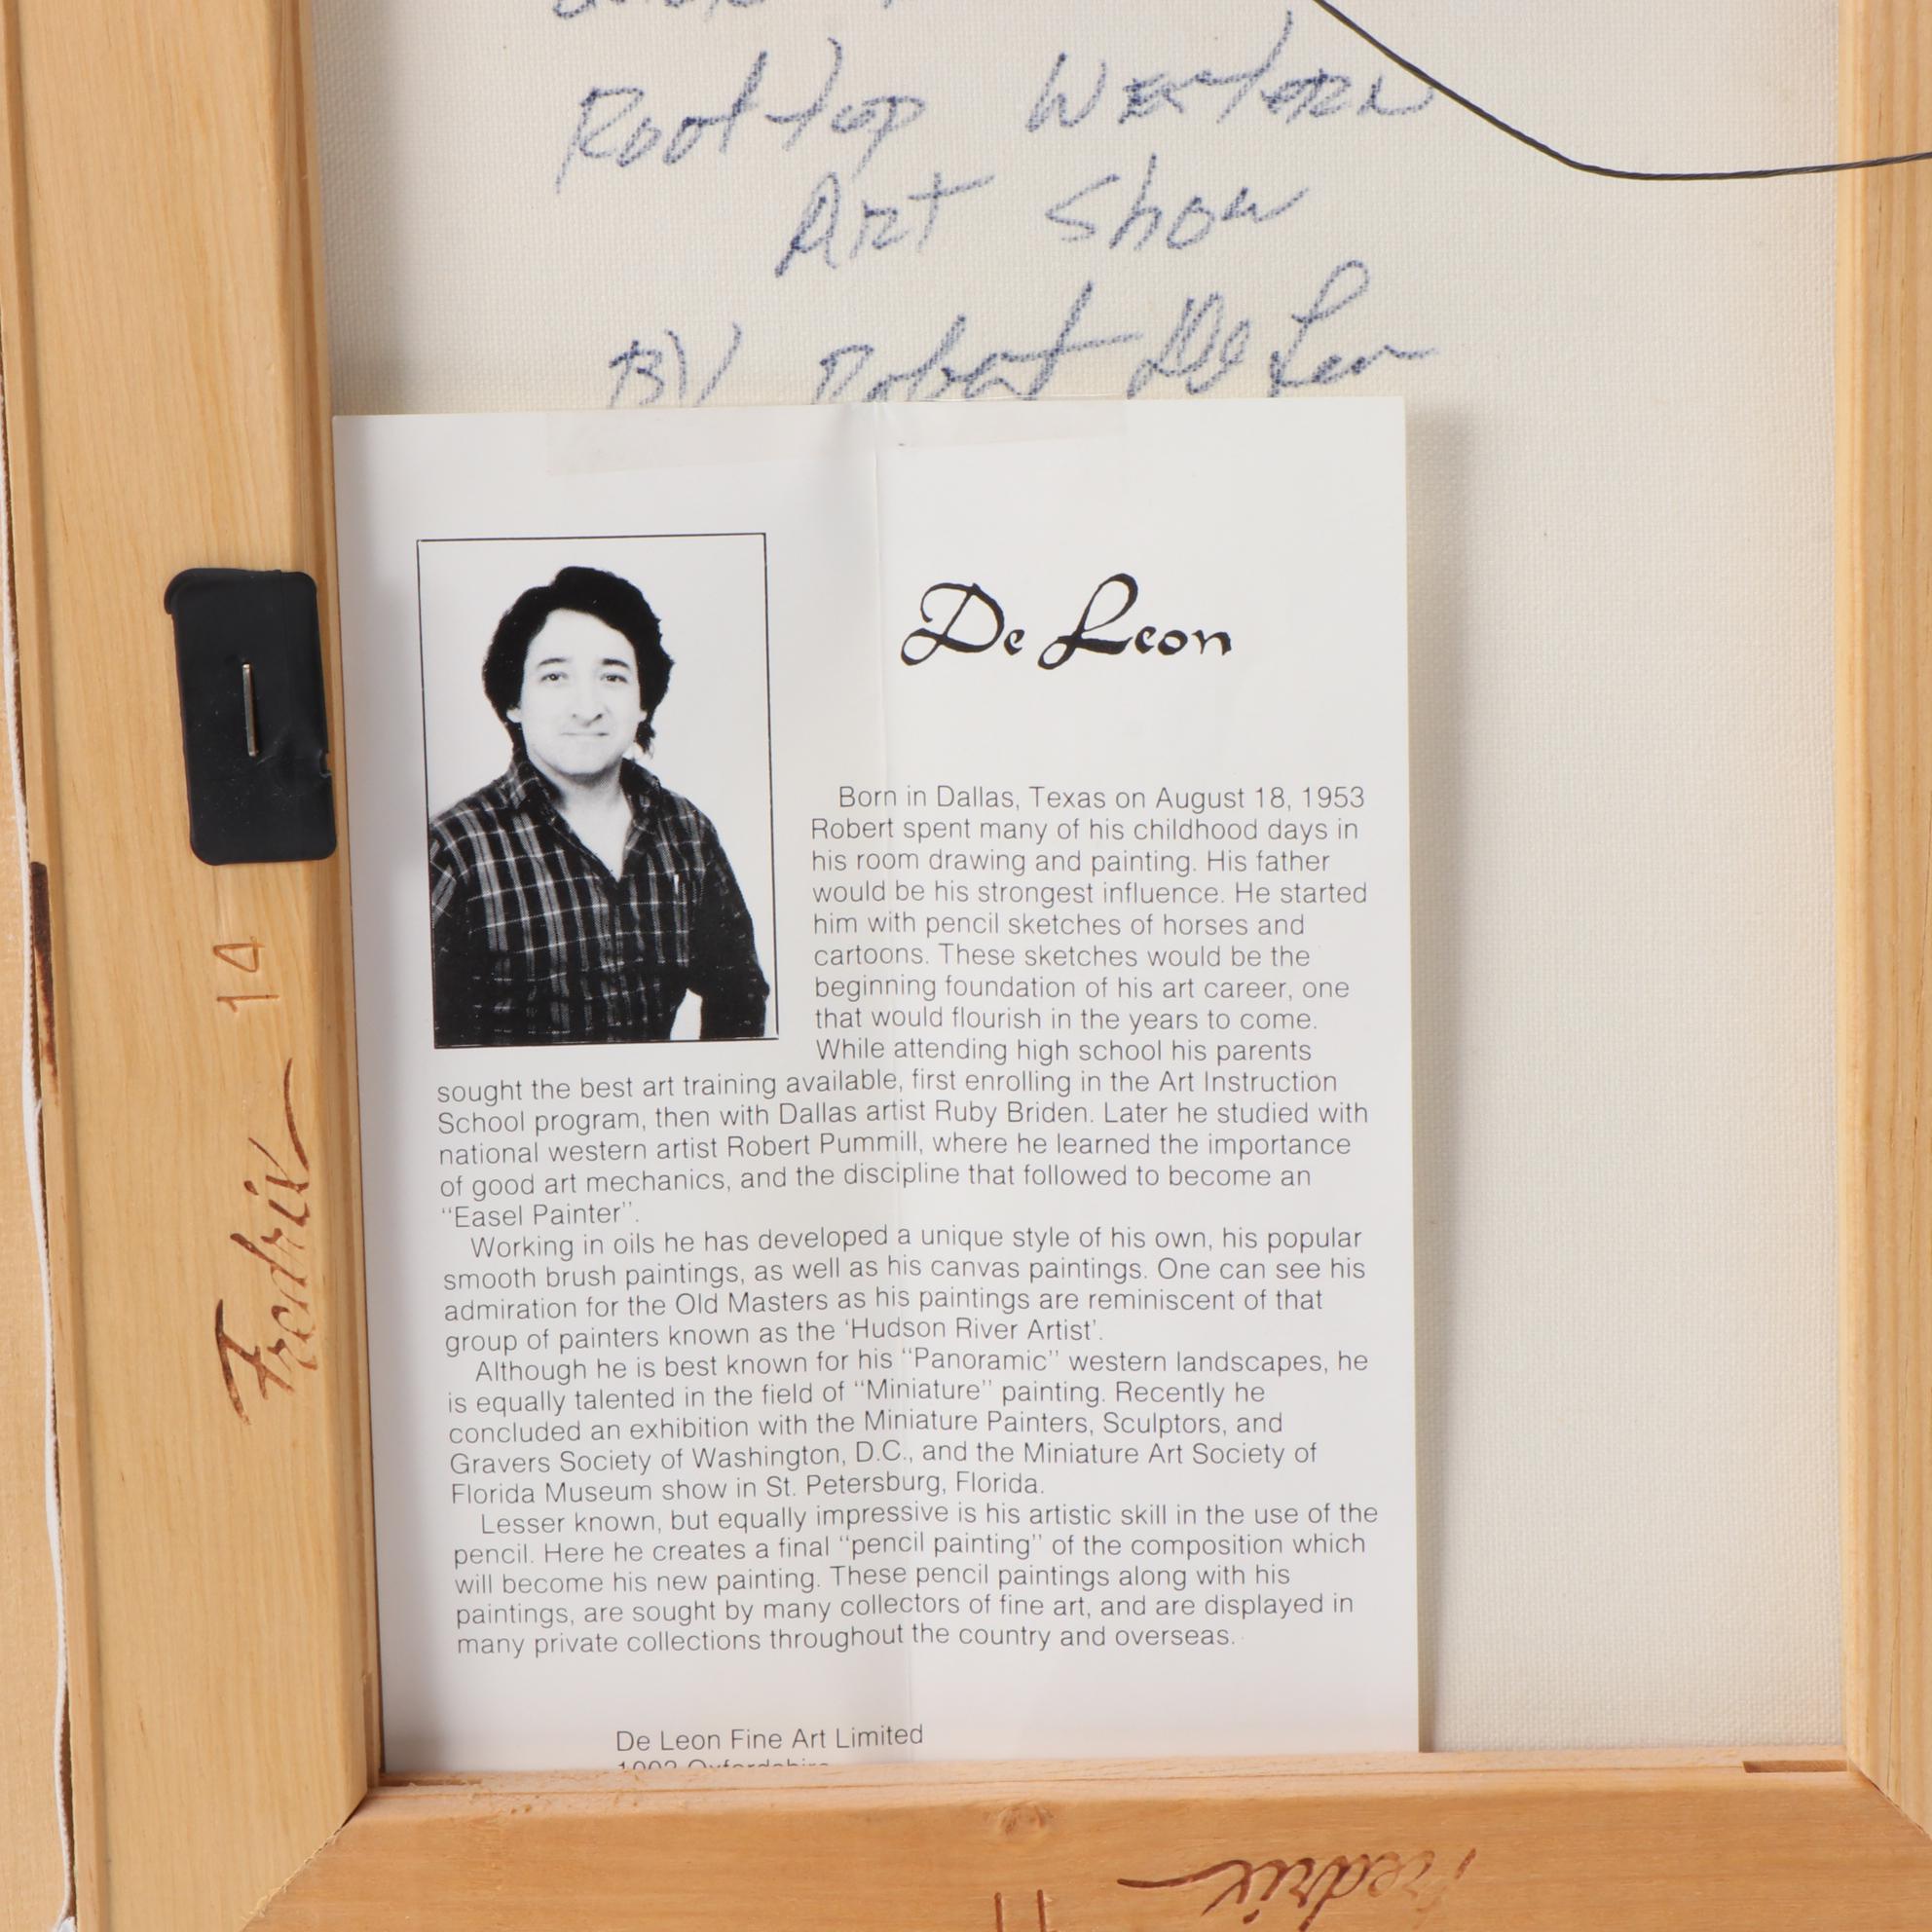 Rooftop Western
Art Show
BY Robert De Leon
De Leon
Born in Dallas, Texas on August 18, 1953
Robert spent many of his childhood days in
his room drawing and painting. His father
would be his strongest influence. He started
him with pencil sketches of horses and
cartoons. These sketches would be the
beginning foundation of his art career, one
that would flourish in the years to come.
While attending high school his parents
sought the best art training available, first enrolling in the Art Instruction
School program, then with Dallas artist Ruby Briden. Later he studied with
national western artist Robert Pummill, where he learned the importance
of good art mechanics, and the discipline that followed to become an
"Easel Painter".
Working in oils he has developed a unique style of his own, his popular
smooth brush paintings, as well as his canvas paintings. One can see his
admiration for the Old Masters as his paintings are reminiscent of that
group of painters known as the 'Hudson River Artist'.
Although he is best known for his "Panoramic" western landscapes, he
is equally talented in the field of "Miniature" painting. Recently he
concluded an exhibition with the Miniature Painters, Sculptors, and
Gravers Society of Washington, D.C., and the Miniature Art Society of
Florida Museum show in St. Petersburg, Florida.
Lesser known, but equally impressive is his artistic skill in the use of the
pencil. Here he creates a final "pencil painting" of the composition which
will become his new painting. These pencil paintings along with his
paintings, are sought by many collectors of fine art, and are displayed in
many private collections throughout the country and overseas.
De Leon Fine Art Limited
1002 Oxfordshire
Fredrix 14
Fredrix 11